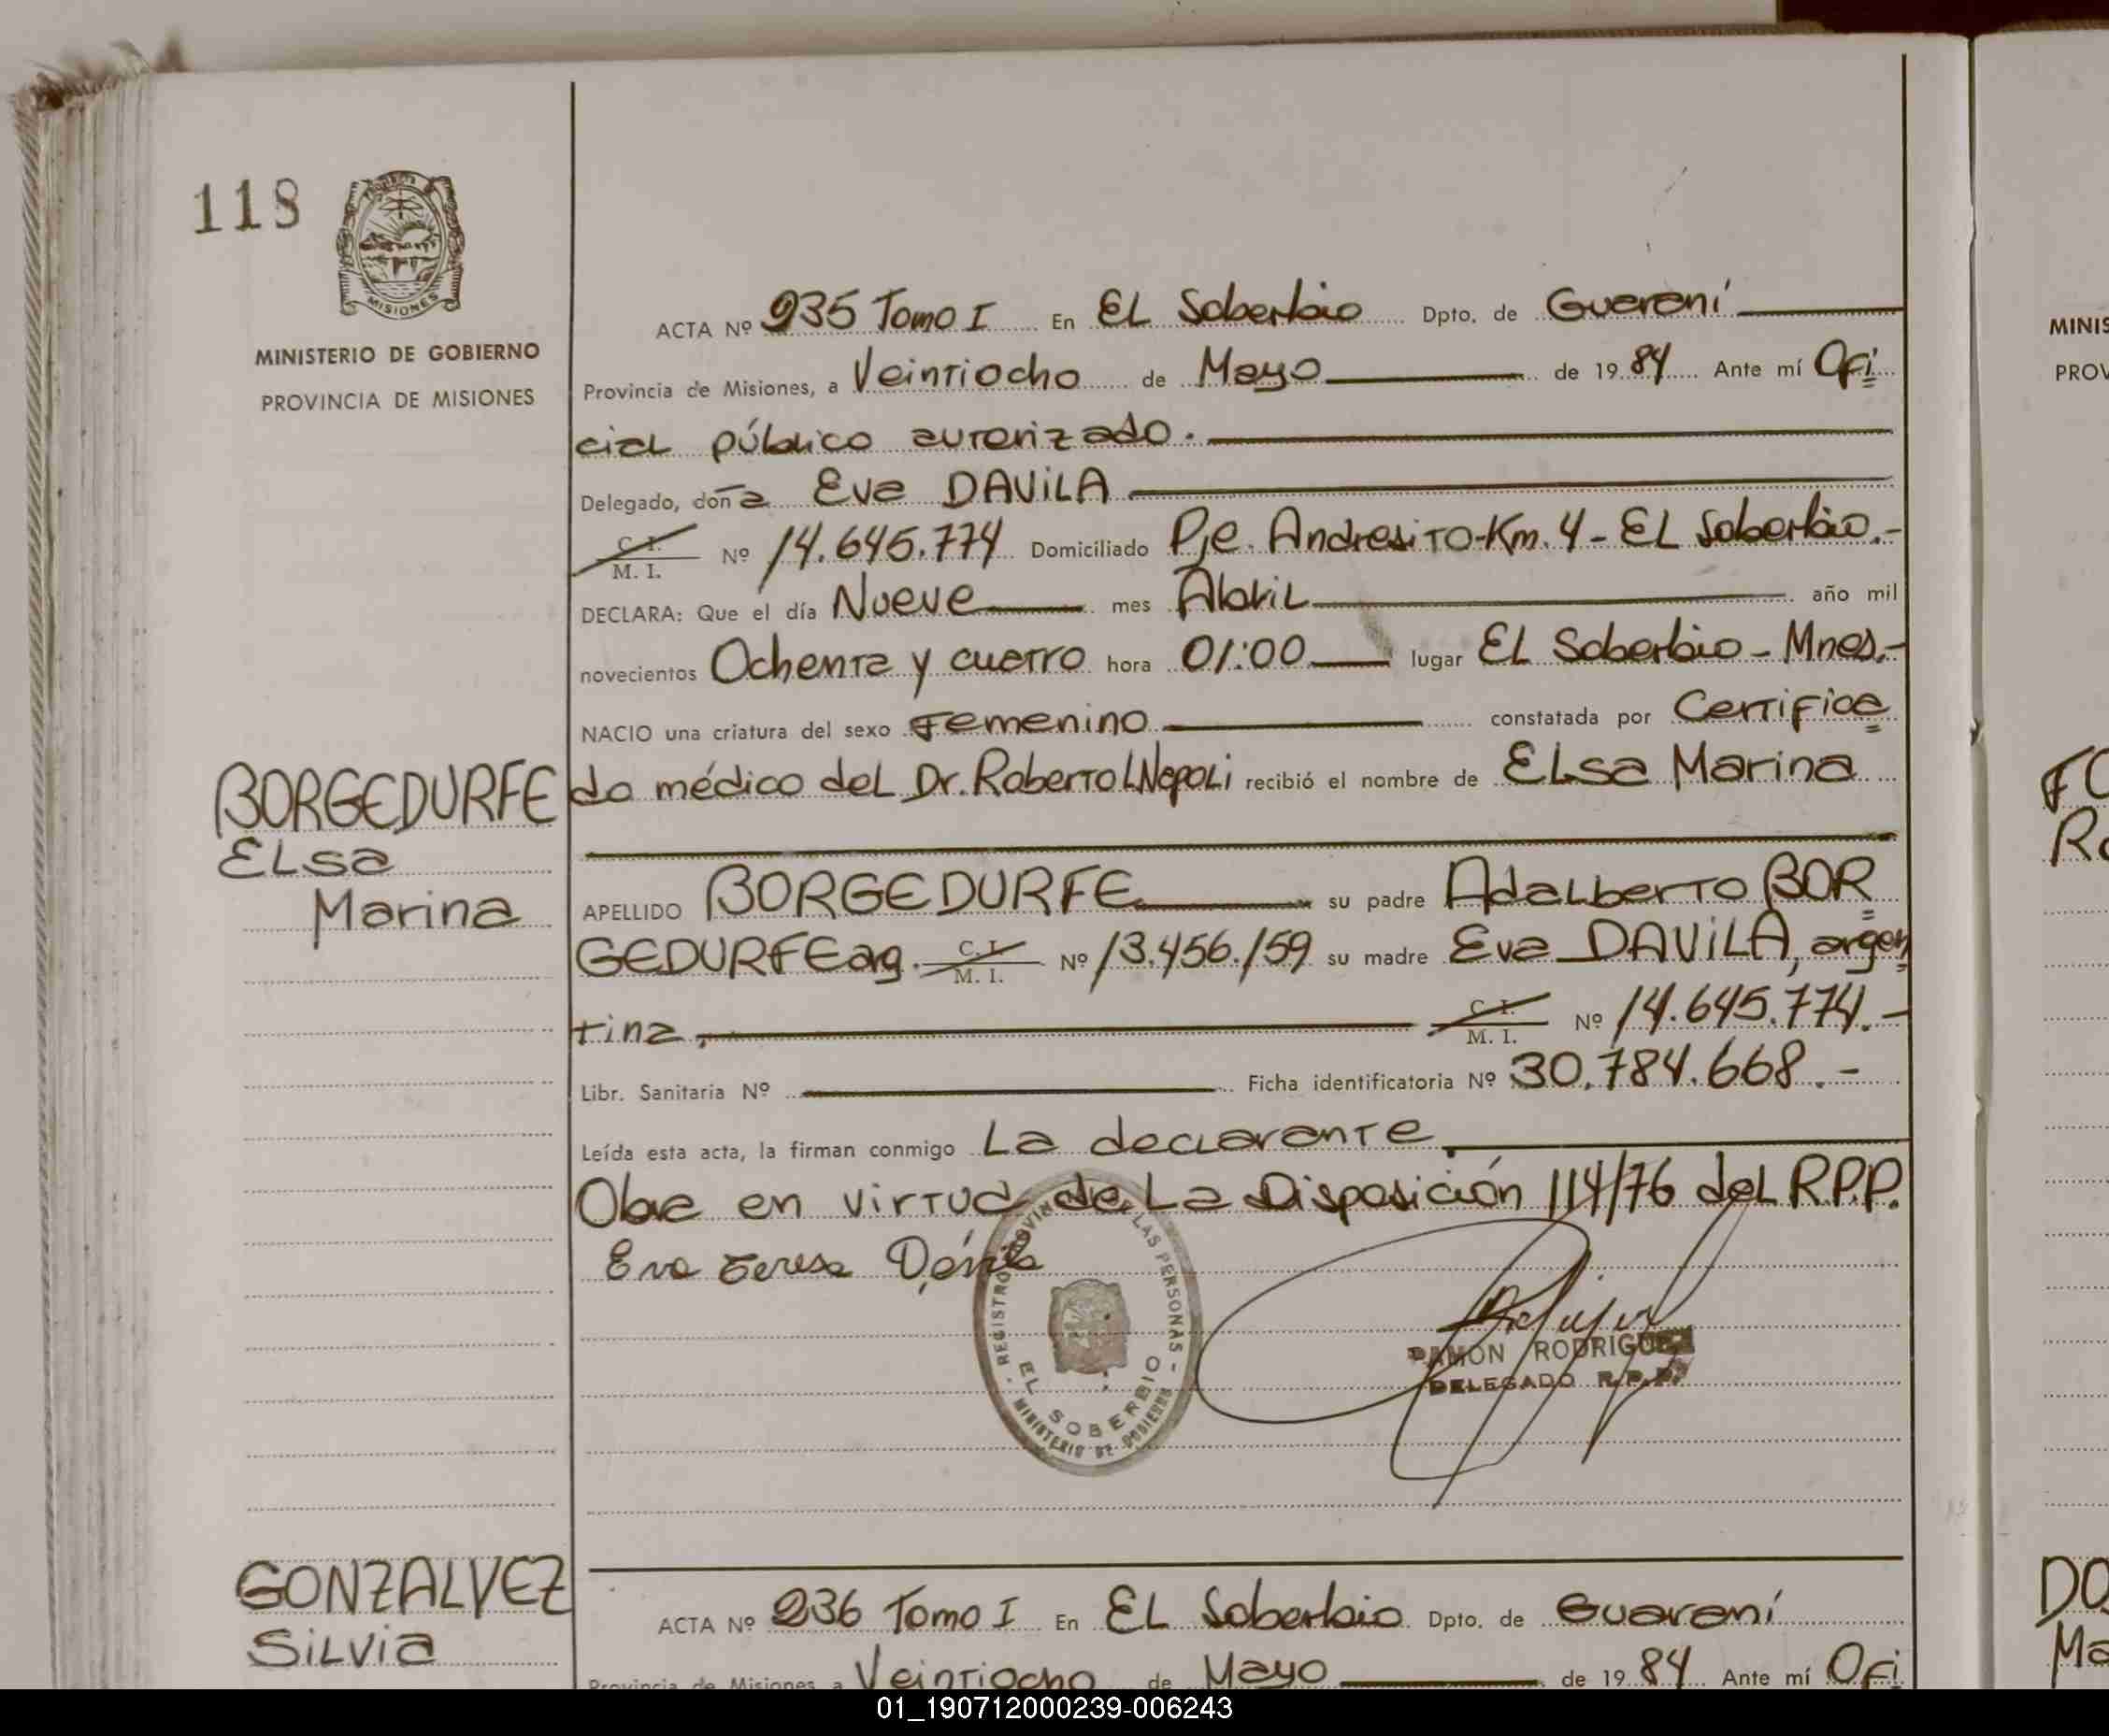 118
MISIONES
MINISTERIO DE GOBIERNO
PROVINCIA DE MISIONES
ACTA Nº 235 Tomo I En EL Soberbio Dpto. de Guaraní
Provincia de Misiones, a Veintiocho de Mayo de 1984 Ante mí Ofi
cial público autorizado.
Delegado, doña Eva DAViLA
C. I.
M. I. Nº 14.645.774 Domiciliado Pje. Andresito-Km. 4 - EL Soberbio.-
DECLARA: Que el día Nueve mes Abril año mil
novecientos Ochenta y cuatro hora 01:00 lugar EL Soberbio - Mnes.-
NACIO una criatura del sexo Femenino constatada por Certifica
BORGEDURFE do médico del Dr. Roberto L. Napoli recibió el nombre de ELsa Marina
ELsa
Marina
APELLIDO BORGEDURFE su padre AdaLberto BOR
GEDURFE arg. C. I.
M. I. Nº 13.456.159 su madre Eva DAViLA, argen
tina, C. I.
M. I. Nº 14.645.774.-
Libr. Sanitaria Nº Ficha identificatoria Nº 30.784.668.-
Leída esta acta, la firman conmigo La declarante.
Obra en virtud de La Disposición 114/76 del R.P.P.
Eva Teresa Dávila
REGISTRO PROVINCIAL DE LAS PERSONAS - MINISTERIO DE GOBIERNO
EL SOBERBIO
RAMON RODRIGUEZ
DELEGADO R.P.P.
GONZALVEZ
SiLvia
ACTA Nº 236 Tomo I En EL Soberbio Dpto. de Guaraní
Provincia de Misiones a Veintiocho de Mayo de 1984 Ante mí Ofi
MINIS
PROV
FO
Ro
DO
Ma
01_190712000239-006243